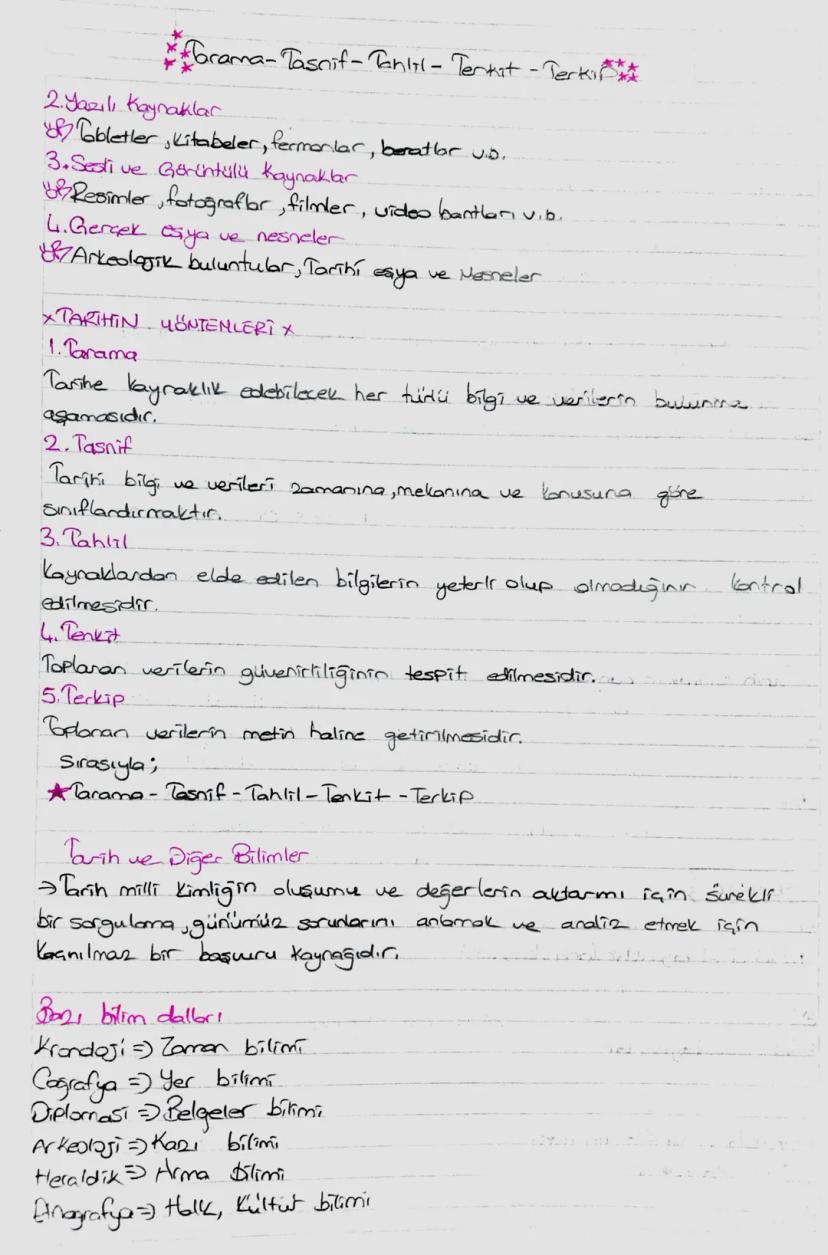 Tarama-Tasnif-Tahlil-Tenkit-Terkip
2.Yazılı Kaynaklar
Tabletler, kitabeler, fermanlar, beratlar v.b.
3.Sesli ve Görüntülü Kaynaklar
Resimler, fotoğraflar, filmler, video bantları v.b.
4.Gerçek eşya ve nesneler
Arkeolojik buluntular, Tarihi eşya ve Nesneler
xTARİHİN YÖNTEMLERİ x
1.Tarama
Tarihe kaynaklık edebilecek her türlü bilgi ve verilerin bulunma
aşamasıdır.
2.Tasnif
Tarihi bilgi ve verileri zamanına, mekanına ve konusuna göre
sınıflandırmaktır.
3.Tahlil
Kaynaklardan elde edilen bilgilerin yeterli olup olmadığının kontrol
edilmesidir.
4.Tenkit
Toplanan verilerin güvenirliliğinin tespit edilmesidir.
5.Terkip
Toplanan verilerin metin haline getirilmesidir.
Sırasıyla;
★Tarama-Tasnif-Tahlil-Tenkit-Terkip
Tarih ve Diğer Bilimler
→Tarih milli kimliğin oluşumu ve değerlerin aktarmı için sürekli
bir sorgulama, günümüz sorunlarını anlamak ve analiz etmek için
kaçınılmaz bir başvuru kaynağıdır.
Bazı bilim dalları
Kronoloji => Zaman bilimi
Coğrafya => Yer bilimi
Diplomasi => Belgeler bilimi
Arkeoloji => Kazı bilimi
Heraldik => Arma Bilimi
Etnografya => Halk, Kültür bilimi